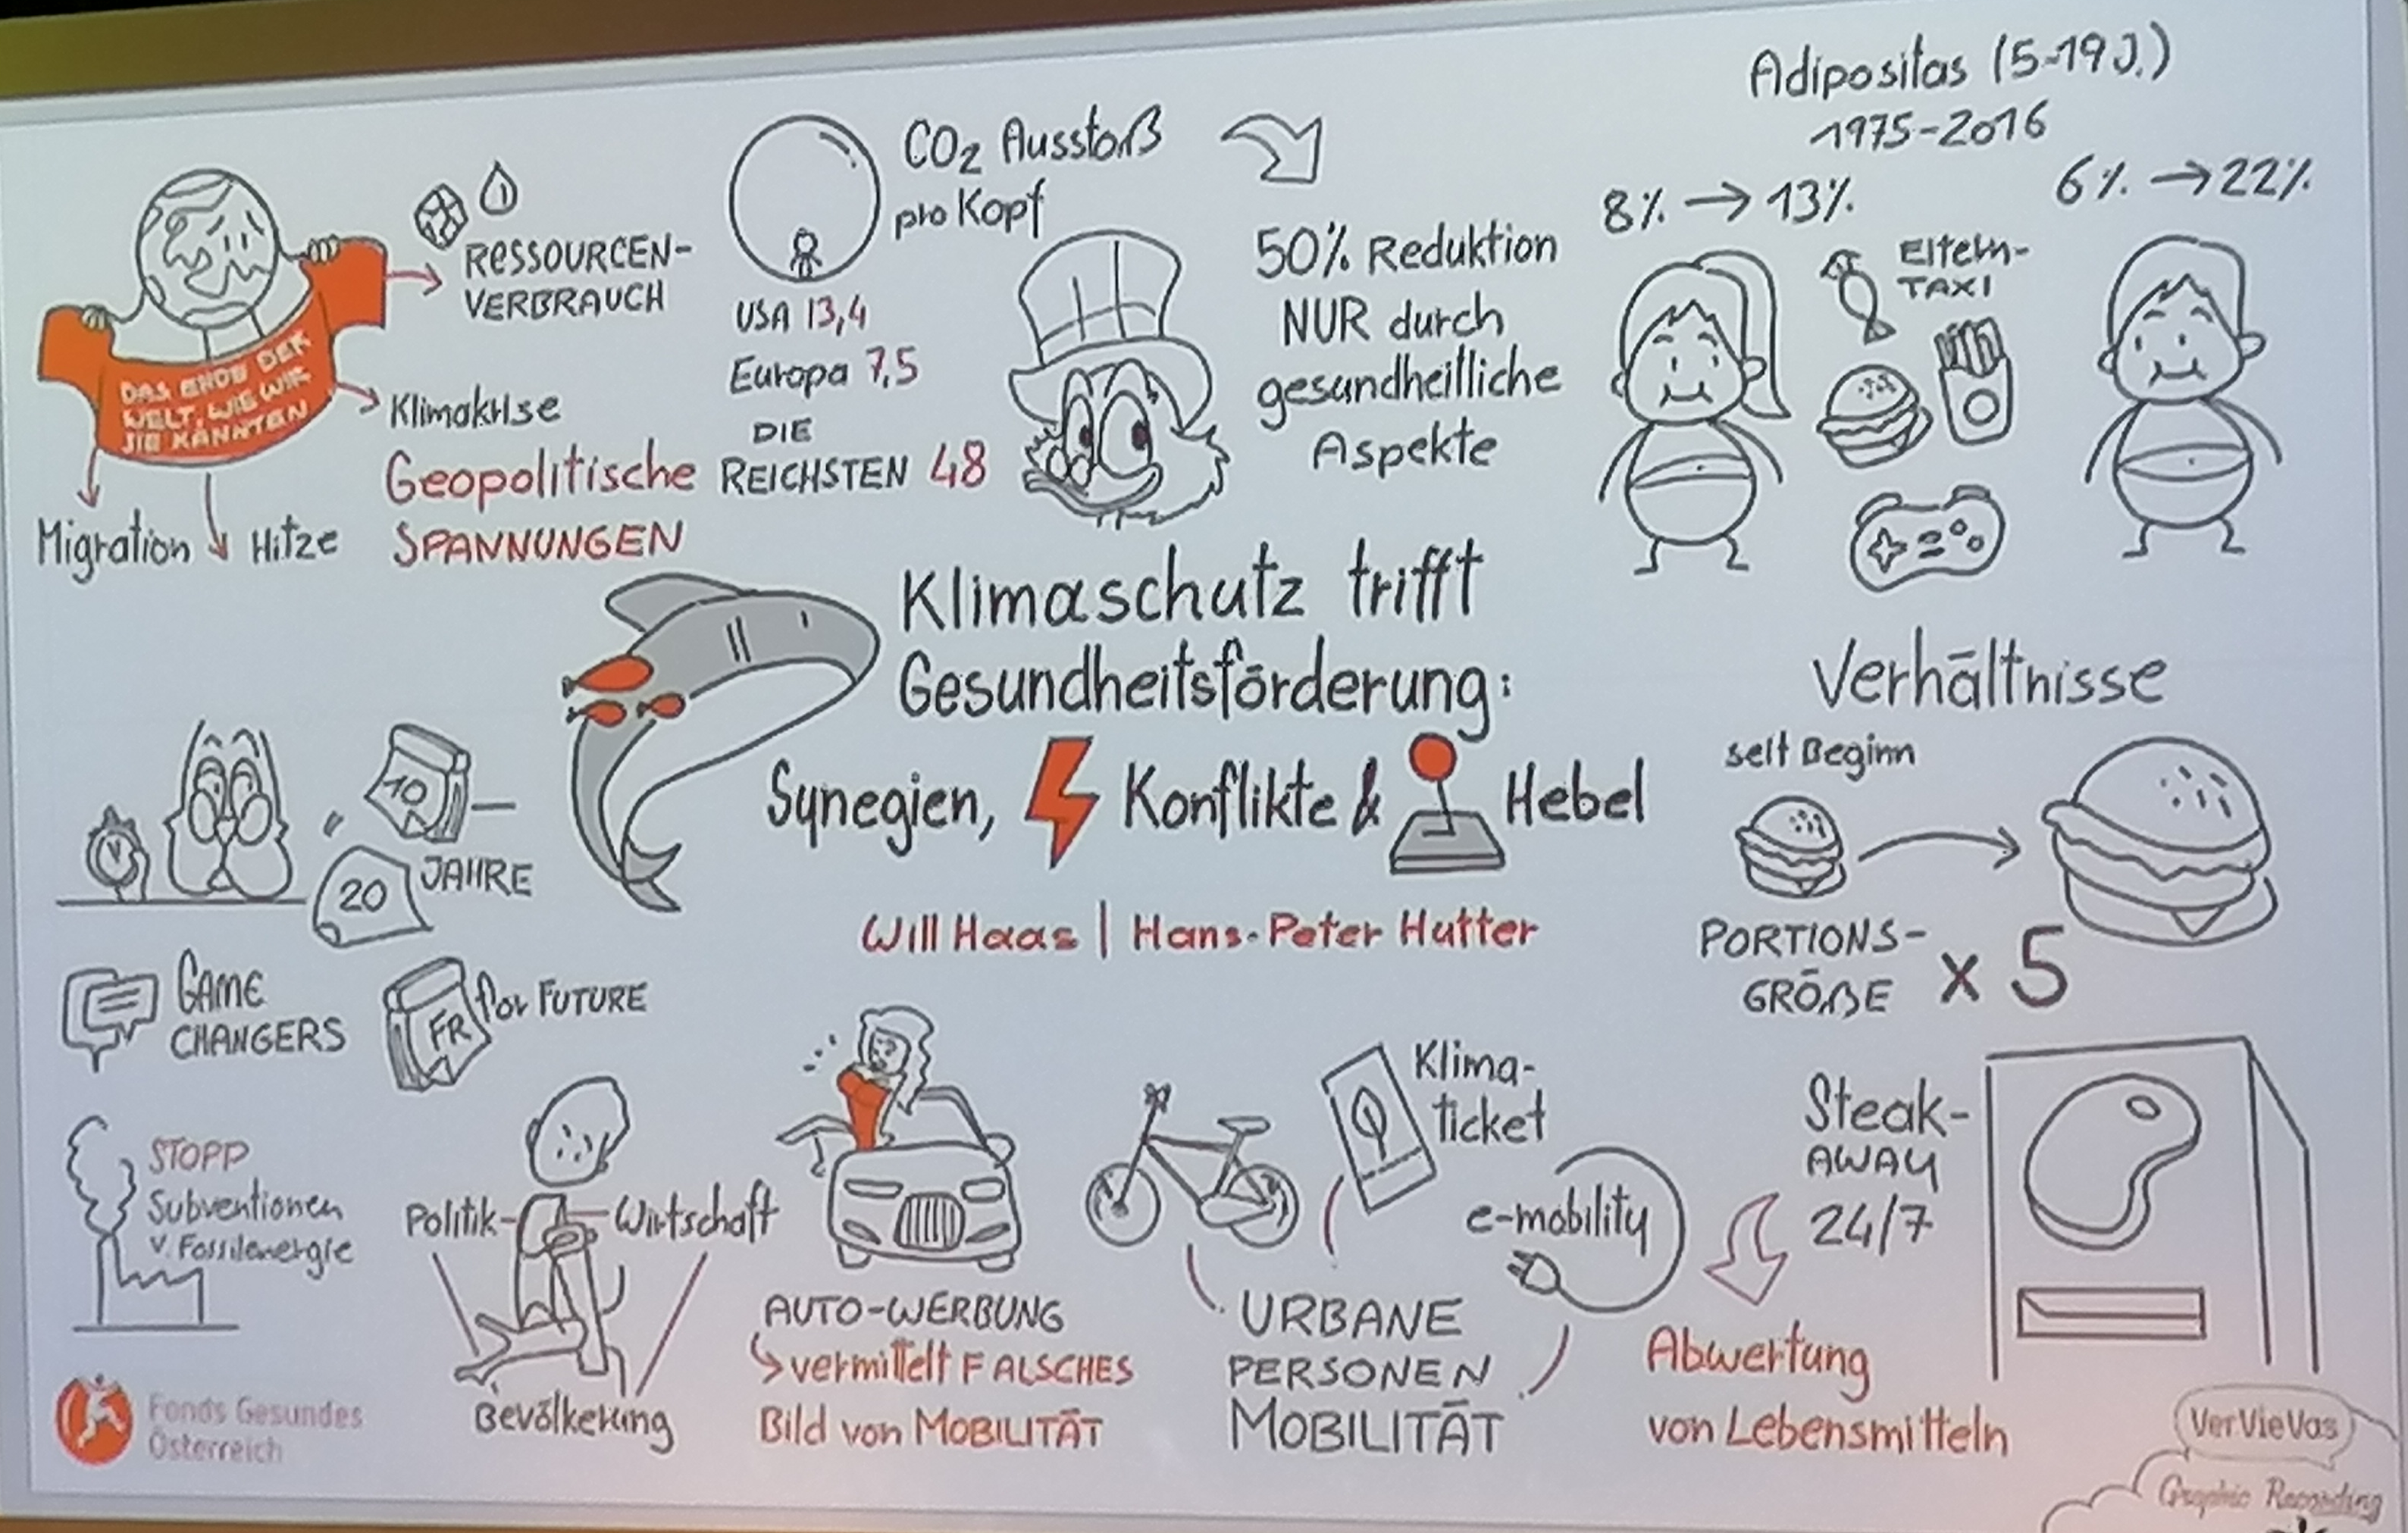 DAS ENDE DER
WELT, WIE WIR
SIE KANNTEN
RESSOURCEN-
VERBRAUCH
Klimakrise
Geopolitische
SPANNUNGEN
Migration
Hitze
CO2 Ausstoß
pro Kopf
USA 13,4
Europa 7,5
DIE
REICHSTEN 48
50% Reduktion
NUR durch
gesundheitliche
Aspekte
Adipositas (5-19 J.)
1975-2016
8% → 13%
6% → 22%
Eltern-
TAXI
Klimaschutz trifft
Gesundheitsförderung:
Synegien, Konflikte & Hebel
Will Haas | Hans-Peter Hutter
10
20
JAHRE
GAME
CHANGERS
FR for FUTURE
Verhältnisse
seit Beginn
PORTIONS-
GRÖßE x 5
STOPP
Subventionen
v. Fossilenergie
Politik
Wirtschaft
Bevölkerung
AUTO-WERBUNG
vermittelt FALSCHES
Bild von MOBILITÄT
Klima-
ticket
e-mobility
URBANE
PERSONEN
MOBILITÄT
Steak-
AWAY
24/7
Abwertung
von Lebensmitteln
Fonds Gesundes
Österreich
VerVieVas
Graphic Recording